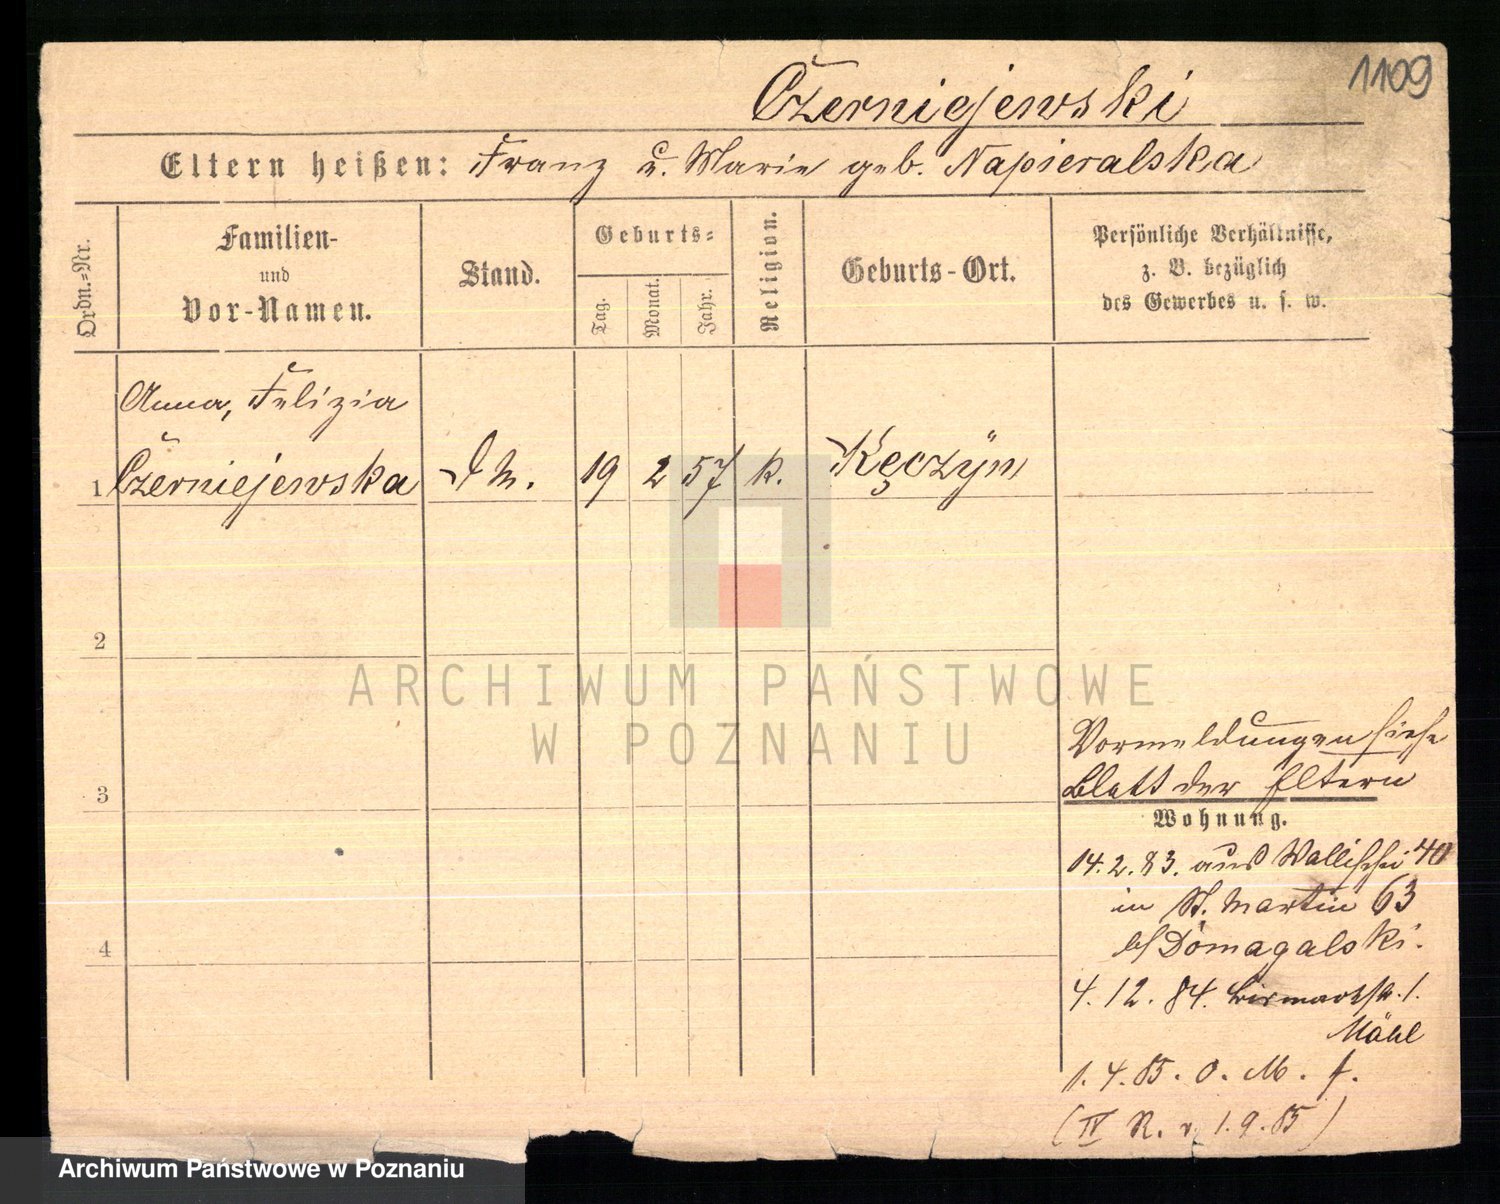 1109
Czerniejewski
Eltern heißen: Franz u. Marie geb. Napieralska
Ordn.-Nr.
Familien-
und
Vor-Namen.
Stand.
Geburts-
Tag.
Monat.
Jahr.
Religion.
Geburts-Ort.
Persönliche Verhältnisse,
z. B. bezüglich
des Gewerbes u. s. w.
Anna, Felizia
1 Czerniejewska 19 2 57 k. Kęczyn
2
ARCHIWUM PAŃSTWOWE
W POZNANIU
Vormeldungen siehe
3 Blatt der Eltern
Wohnung.
14.2.83. aus Wallischei 40
in St. Martin 63
b/ Domagalski.
4
4.12.84. Bismarckstr. 1.
1.4.85. o. M. f.
(IV R. v. 1.9.85)
Archiwum Państwowe w Poznaniu